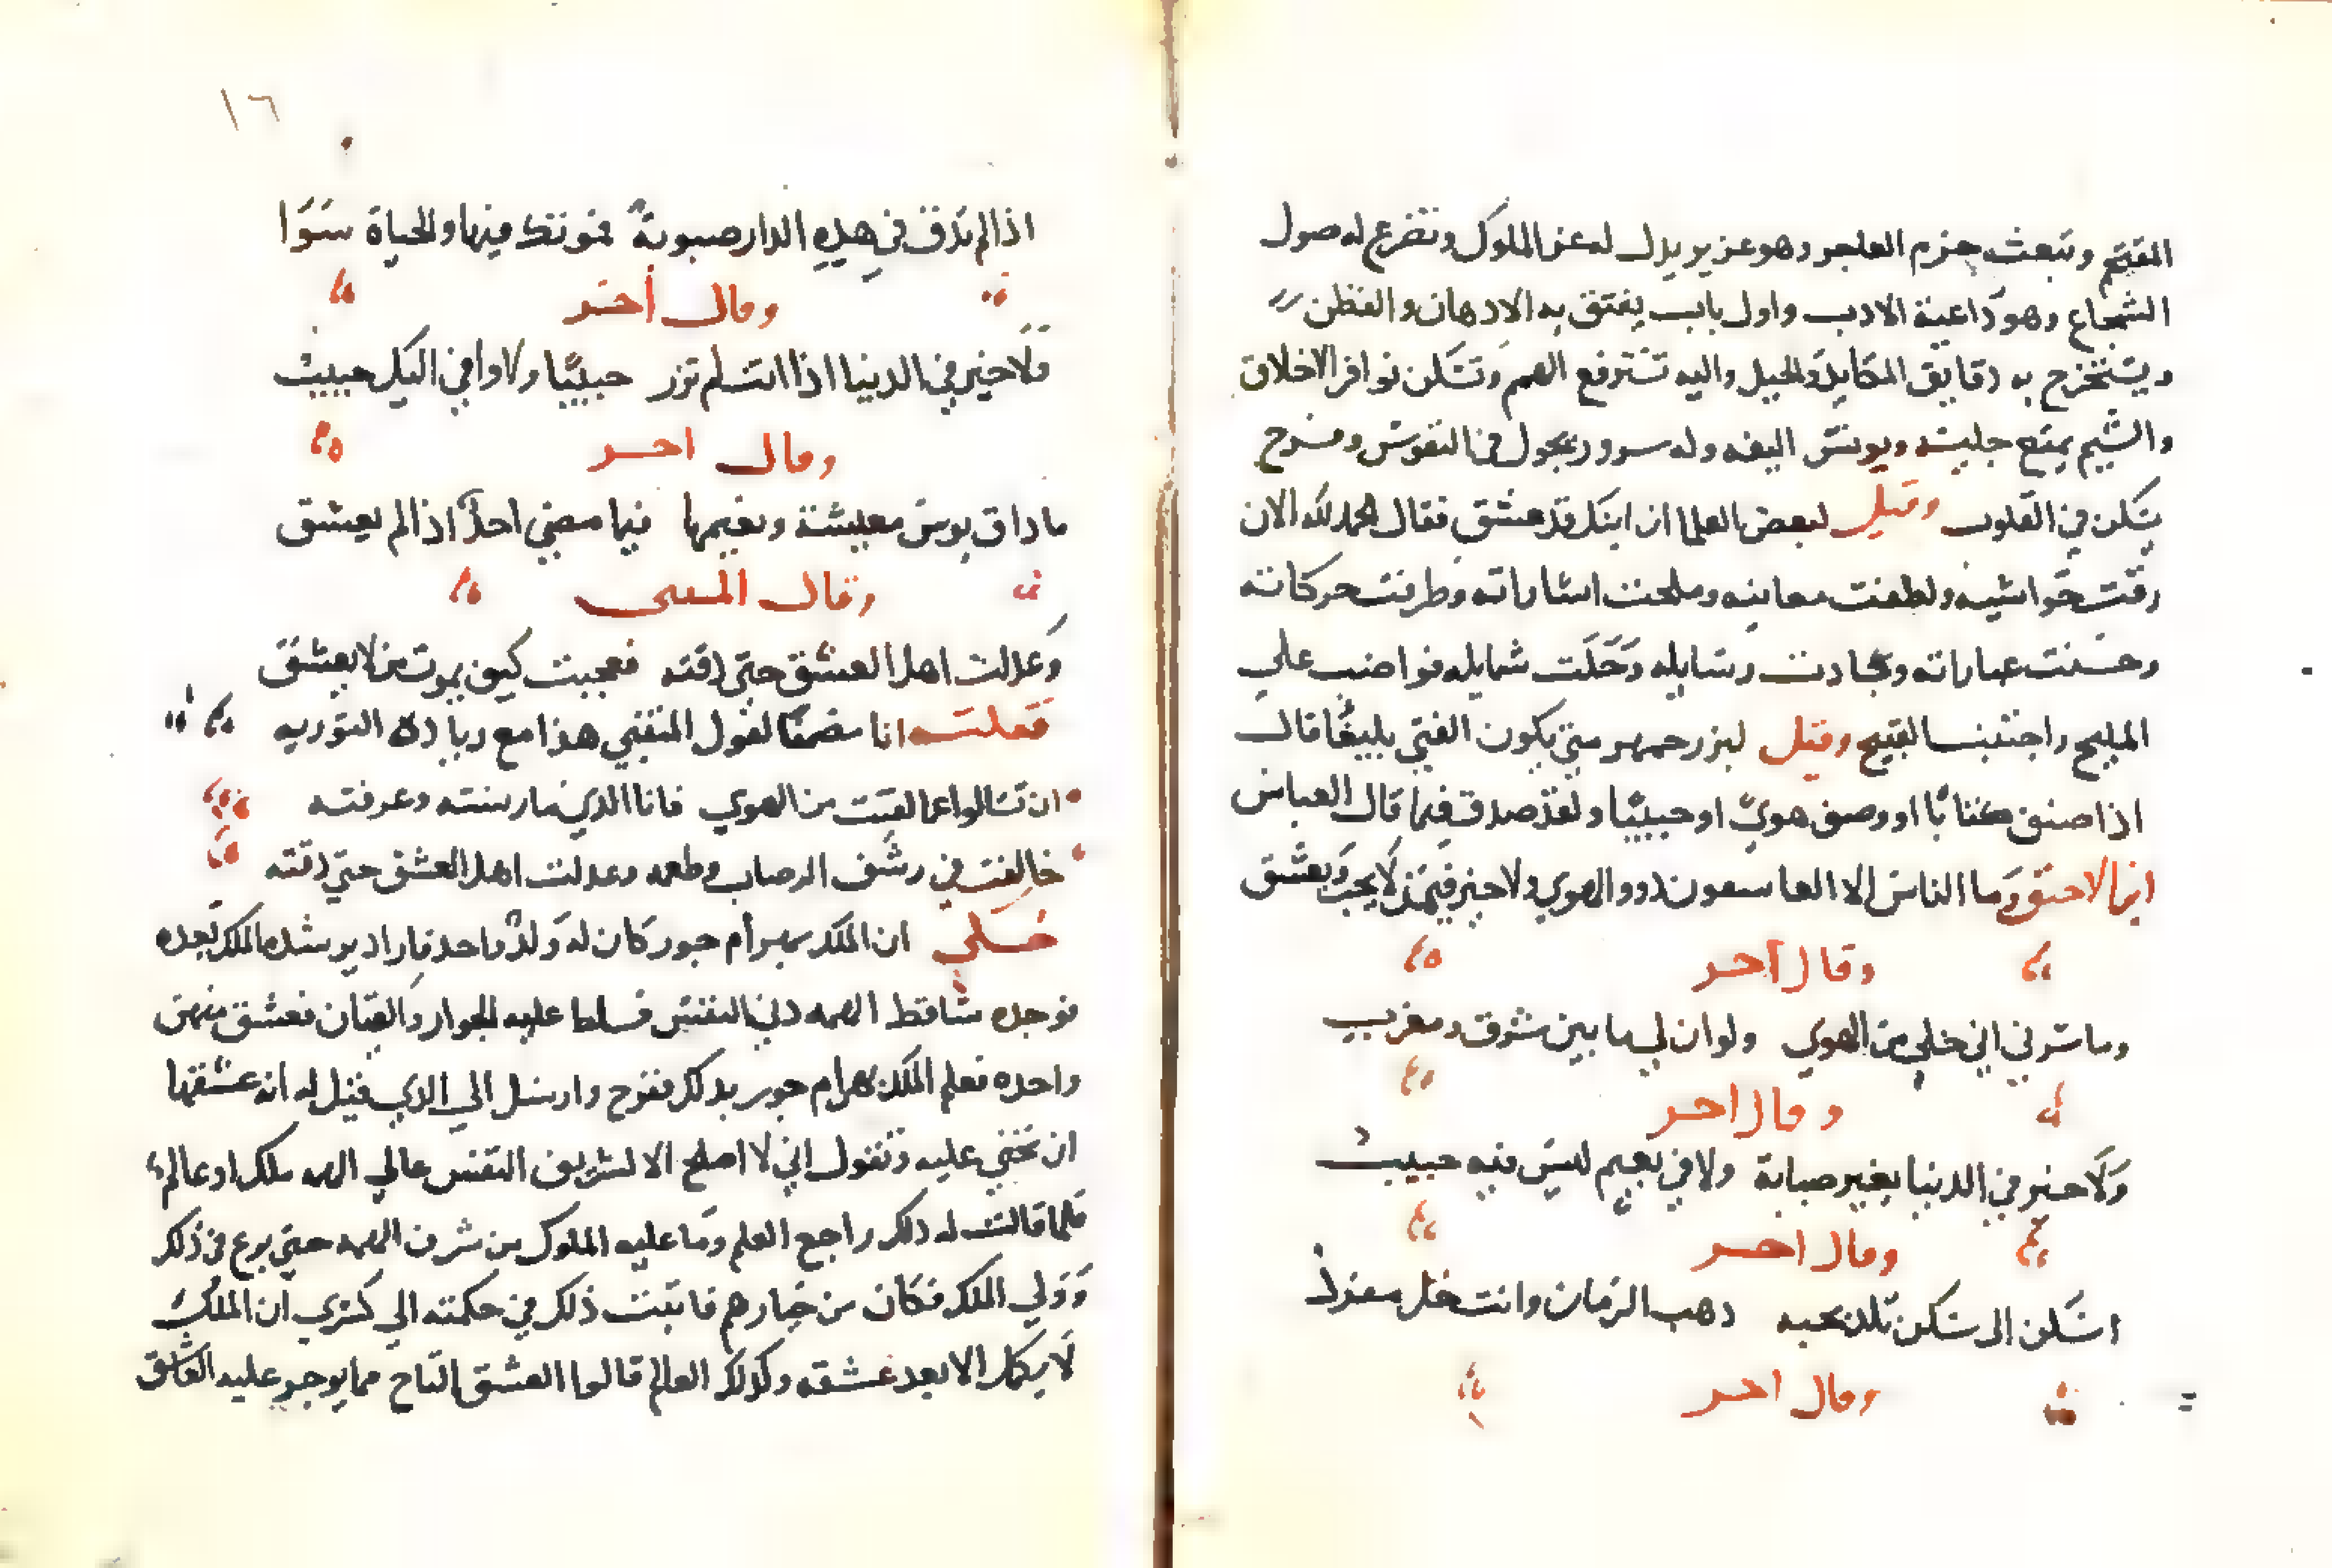 المقيم وتبعث حزم العاجر وهو عزيز يدل له عز الملوك وتضرع له صول
الشجاع وهو داعية الادب واول باب يفتق به الادهان والفطن
ويستخرج به دقايق المكايد والحيل واليه تشترفع الهمم وتسكن نوافر الاخلاق
والشيم يمتع جليسه ويونس اليفه وله سرور يجول في النفوس وفرح
يسكن في القلوب وقيل لبعض العلما ان ابنك قد عشق فقال الحمد لله الان
رقت حواشيه ولطفت معانيه وملحت اشاراته وظرفت حركاته
وحسنت عباراته وجادت رسايله وحلت شمايله فواضب علي
المليح واجتنب القبيح وقيل لبزرجمهر متي يكون الفتي بليغا قال
اذا صنف كتابا او وصف هوي او حبيبا ولقد صدق فيما قال العباس
ابن الاحنف وما الناس الا العاشقون ذوو الهوي ولا خير فيمن لا يحب ويعشق
وقال آخر
وما سرني اني خلي من الهوي ولو ان لي ما بين شرق ومغرب
وقال اخر
ولا خير في الدنيا بغير صبابة ولا في نعيم ليس فيه حبيب
وقال اخر
اسكن الى سكن تلذ بحبه دهب الزمان وانت خل مفرد
وقال اخر
١٦
اذا لم تذق في هذه الدار صبوة فموتك فيها والحياة سوا
وقال أخر
ولا خير في الدنيا اذا انت لم تزر حبيبا ولا وافي اليك حبيب
وقال اخر
ما داق بوس معيشة ونعيمها فيما مضي احد اذا لم يعشق
وقال المتنبى
وعدلت اهل العشق حتي دقته فعجبت كيف يموت من لا يعشق
فقلت انا مضمنا لقول المتنبي هذا مع زيادة التوريه
ان تسالوا عما لقيت من الهوي فانا الذي مارسته وعرفته
خالفت في رشف الرضاب وطعمه وعدلت اهل العشق حتي دقته
حكي ان الملك بهرام جور كان له ولد واحد فاراد يرشده الملك بعده
فوجده ساقط الهمه دني النفس فسلط عليه الجوار والقيان فعشق منهن
واحده فعلم الملك بهرام جور بدلك ففرح وارسل الي الذي قيل له انه عشقها
ان تجني عليه وتقول اني لا اصلح الا لشريف النفس عالي الهمه ملك او عالم
فلما قالت له دلك راجع العلم وما عليه الملوك من شرف الهمه حتي برع في ذلك
وولي الملك فكان من خيارهم فاثبت ذلك في حكمته الي كسري ان الملك
لا يكمل الا بعد عشقه وكدلك العالم قالوا العشق التاج مما يوجر عليه العاشق